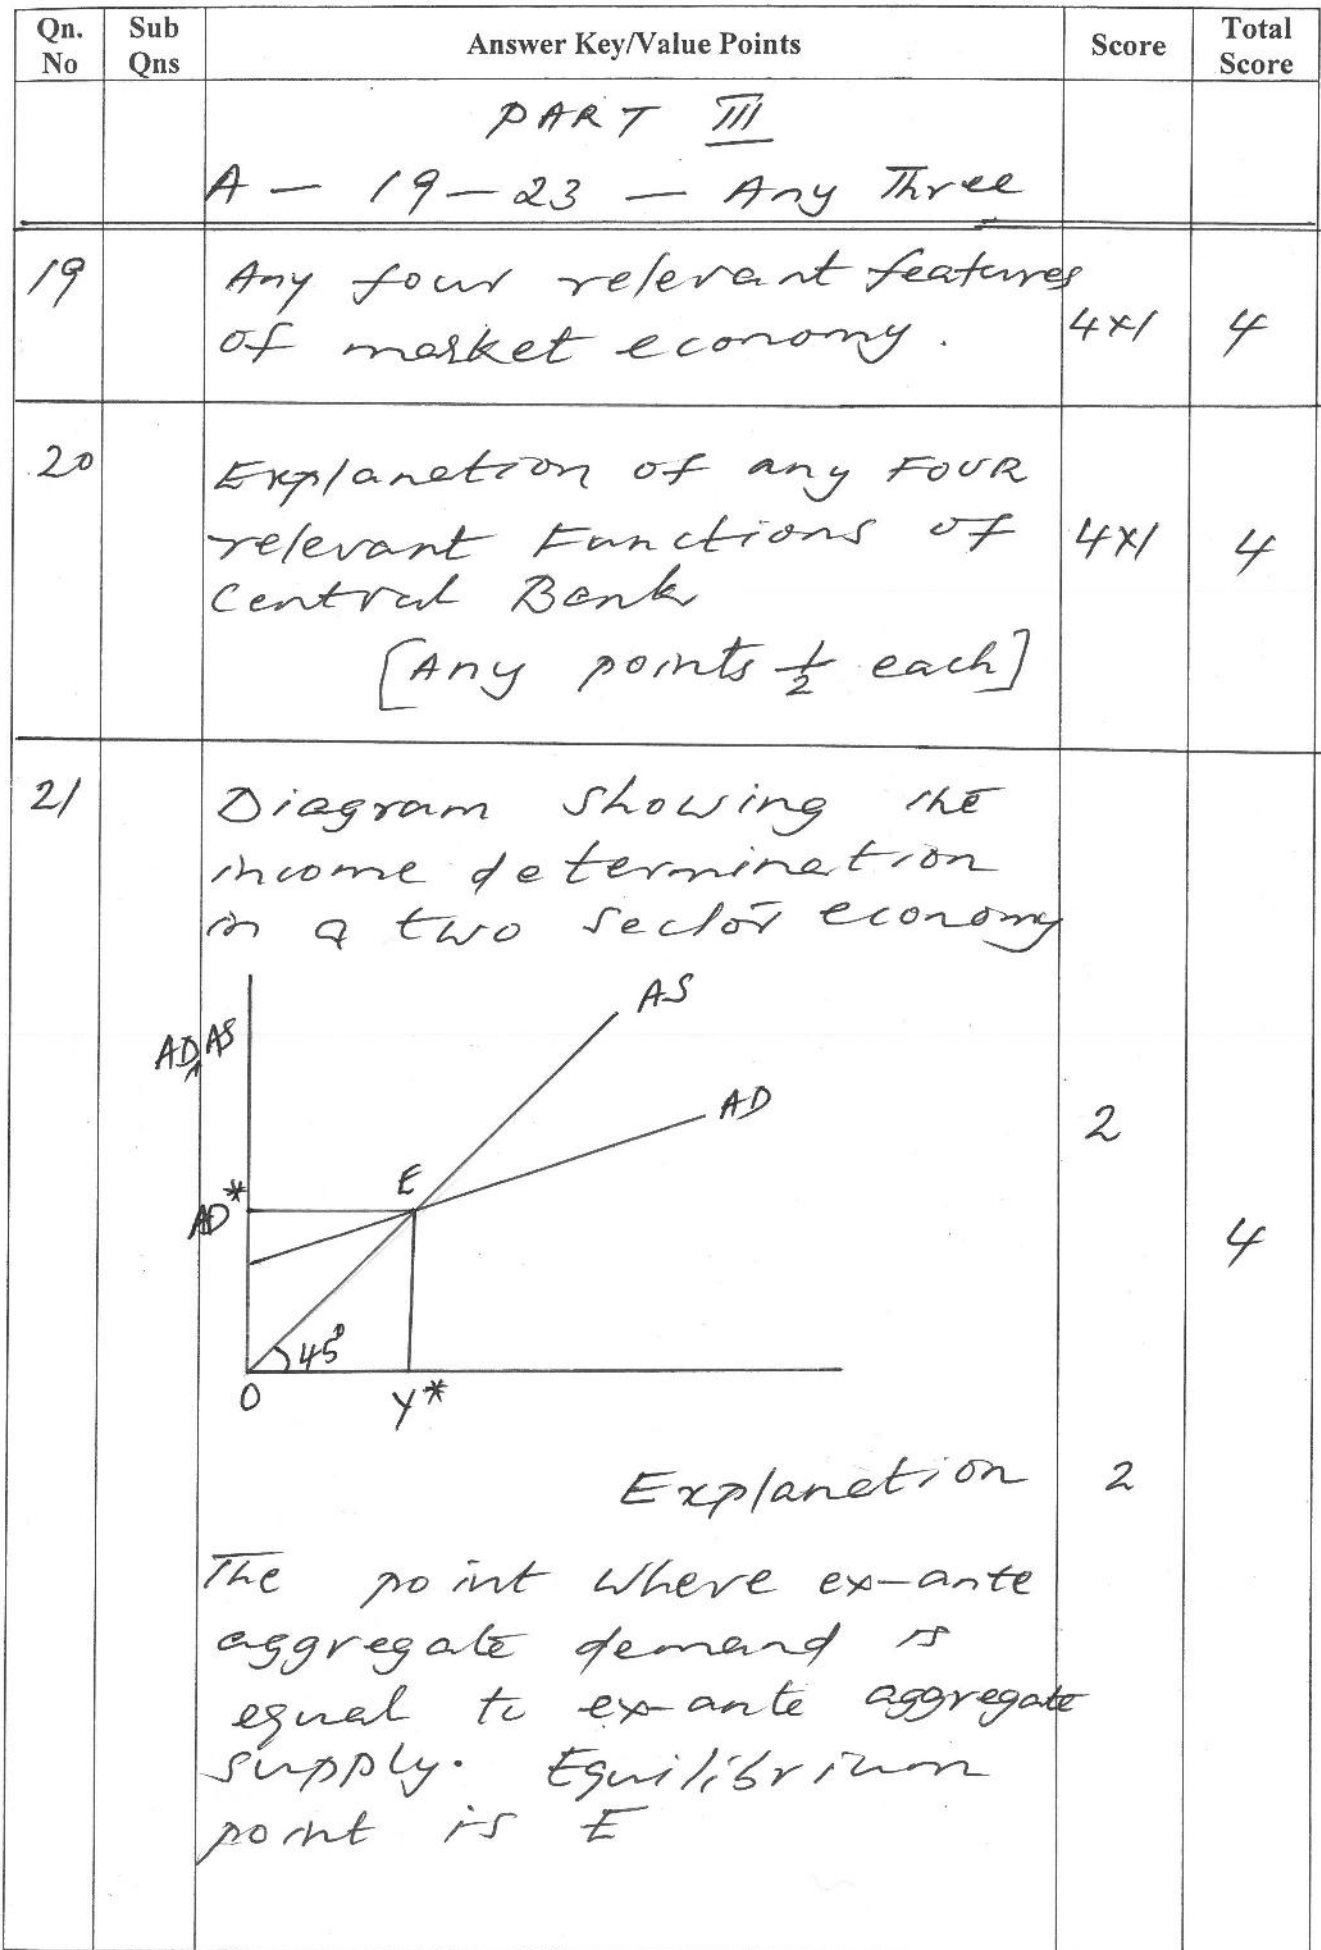 Qn. No Sub Qns Answer Key/Value Points Score Total Score
PART III
A - 19-23 - Any Three
19 Any four relevant features
of market economy. 4x1 4
20 Explanation of any FOUR
relevant Functions of 4x1 4
Central Bank
[Any points 1/2 each]
21 Diagram showing the
income determination
in a two sector economy
AS
AD, AS
AD
2
E
AD*
4
45°
O Y*
Explanation 2
The point where ex-ante
aggregate demand is
equal to ex-ante aggregate
supply. Equilibrium
point is E